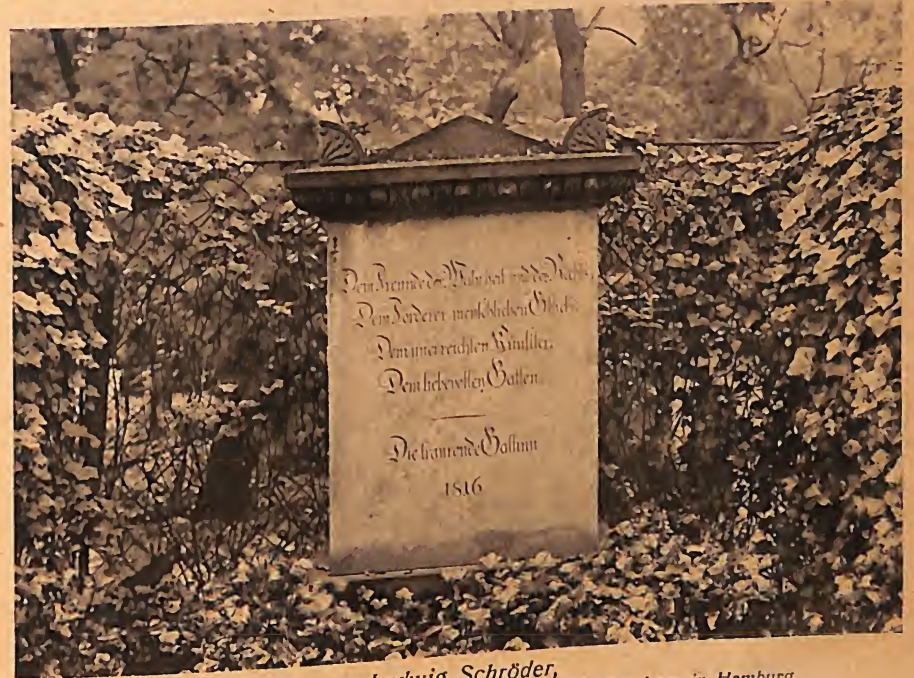 Dem Freunde der Wahrheit und des Rechts,
Dem Förderer menschlichen Glücks,
Dem unerreichten Künstler,
Dem liebevollen Gatten
Die traurende Gattinn
1816
Ludwig Schröder,
in Hamburg